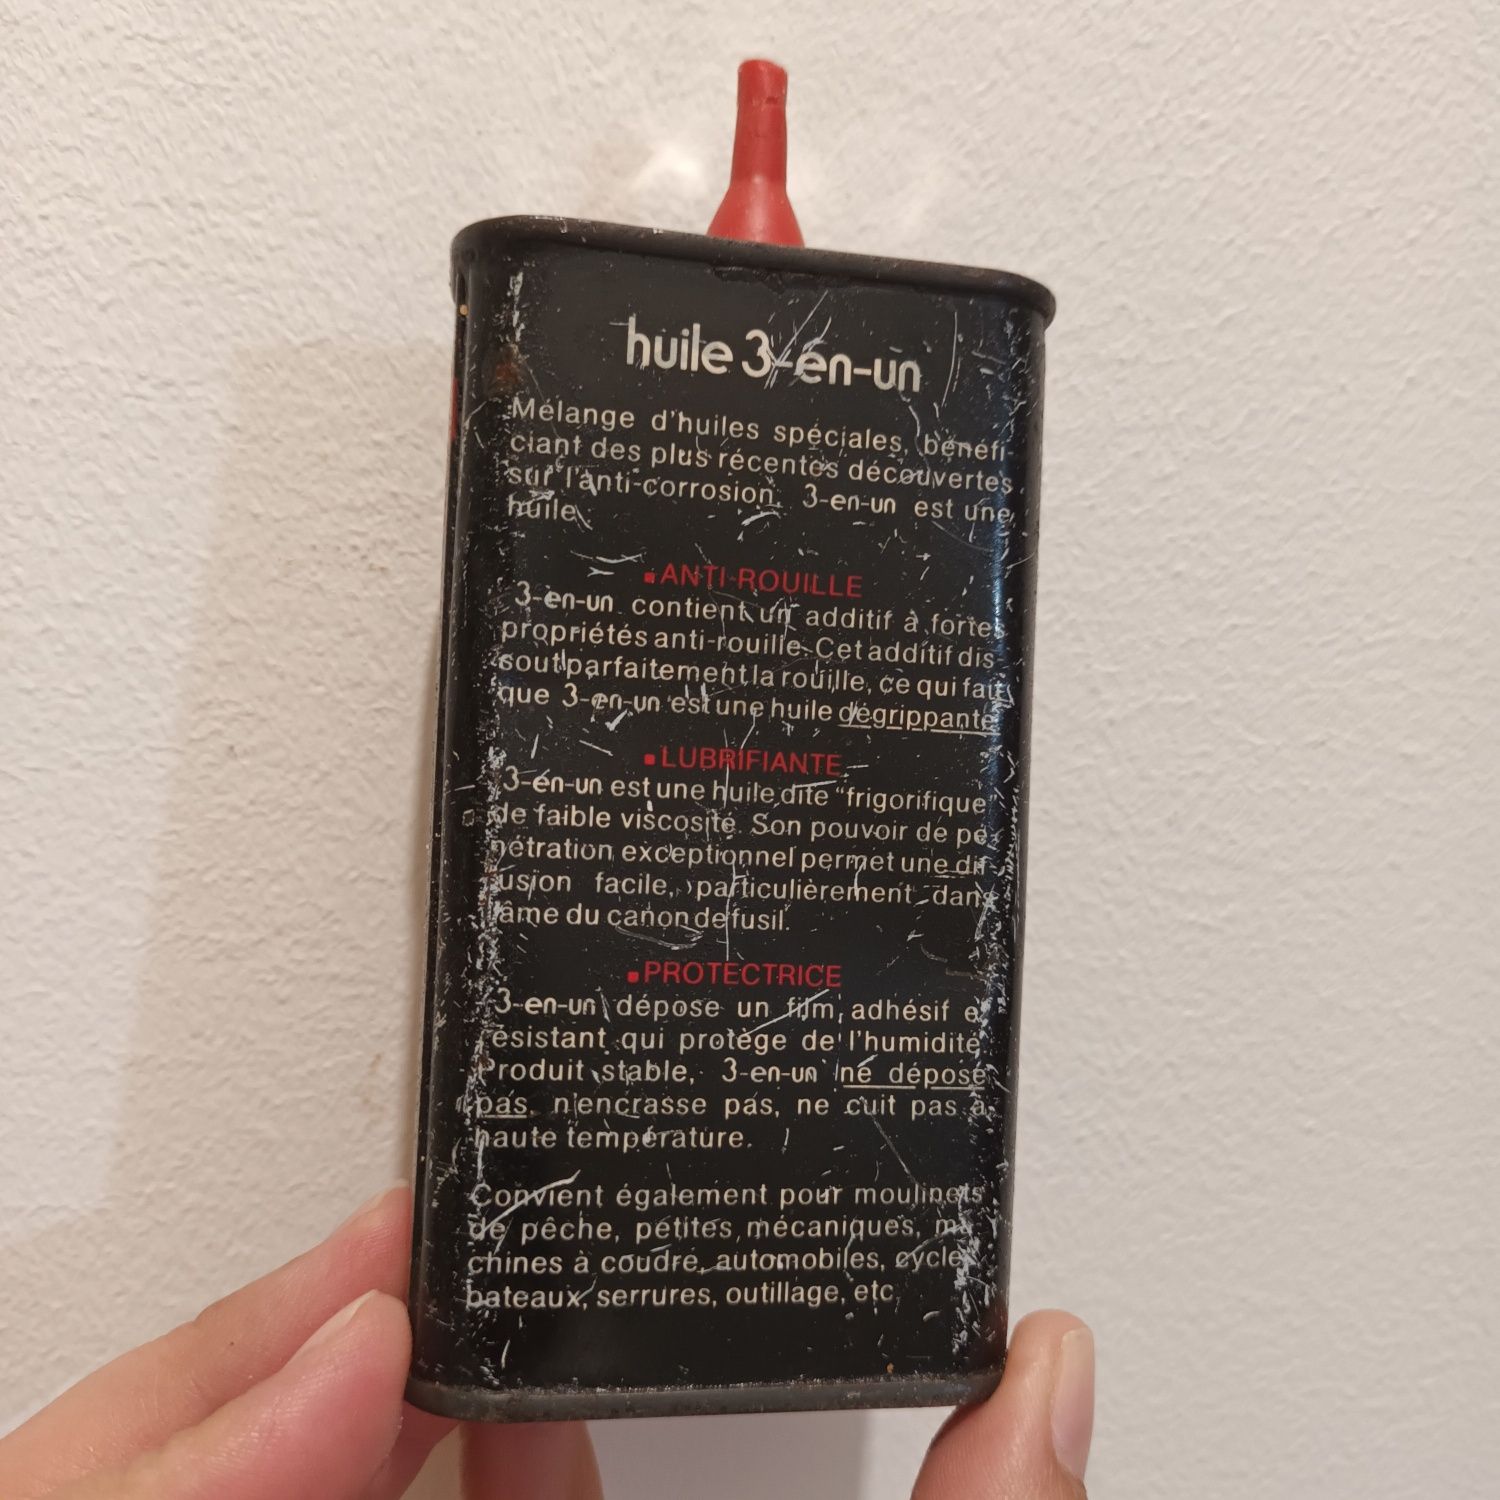 huile 3-en-un
Mélange d'huiles spéciales, bénéfi-
ciant des plus récentes découvertes
sur l'anti-corrosion, 3-en-un est une
huile:
▪ANTI-ROUILLE
3-en-un contient un additif à fortes
propriétés anti-rouille. Cet additif dis-
sout parfaitement la rouille, ce qui fait
que 3-en-un est une huile dégrippante.
▪LUBRIFIANTE
3-en-un est une huile dite "frigorifique"
de faible viscosité. Son pouvoir de pé-
nétration exceptionnel permet une dif-
fusion facile, particulièrement dans
l'âme du canon de fusil.
▪PROTECTRICE
3-en-un dépose un film adhésif et
résistant qui protège de l'humidité.
Produit stable, 3-en-un ne dépose
pas, n'encrasse pas, ne cuit pas à
haute température.
Convient également pour moulinets
de pêche, petites mécaniques, ma-
chines à coudre, automobiles, cycles,
bateaux, serrures, outillage, etc.